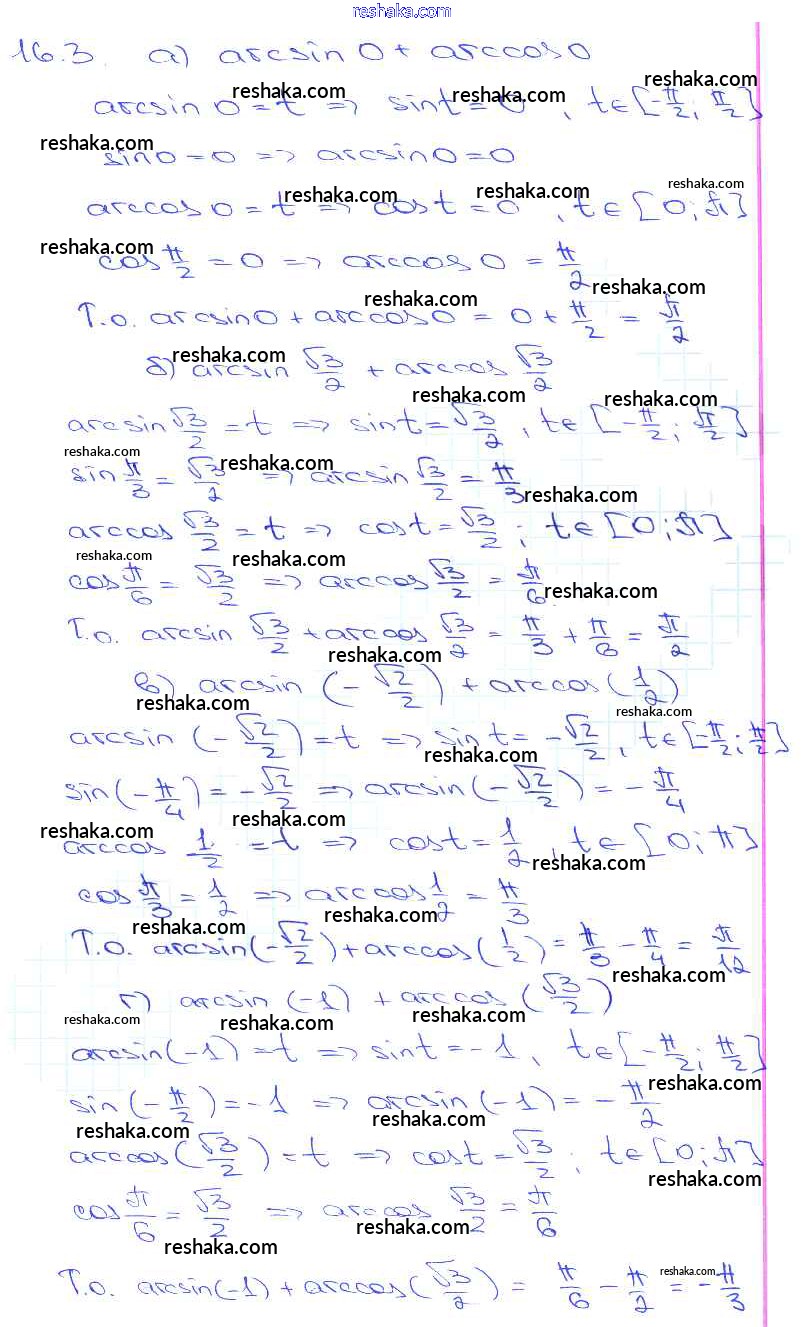 reshaka.com
16.3. а) arcsin 0 + arccos 0
arcsin 0 = t => sin t = 0, t ∈ [-π/2; π/2]
sin 0 = 0 => arcsin 0 = 0
arccos 0 = t => cos t = 0, t ∈ [0; π]
cos π/2 = 0 => arccos 0 = π/2
Т.о. arcsin 0 + arccos 0 = 0 + π/2 = π/2
б) arcsin √3/2 + arccos √3/2
arcsin √3/2 = t => sin t = √3/2, t ∈ [-π/2; π/2]
sin π/3 = √3/2 => arcsin √3/2 = π/3
arccos √3/2 = t => cos t = √3/2; t ∈ [0; π]
cos π/6 = √3/2 => arccos √3/2 = π/6
Т.о. arcsin √3/2 + arccos √3/2 = π/3 + π/6 = π/2
в) arcsin (-√2/2) + arccos (1/2)
arcsin (-√2/2) = t => sin t = -√2/2, t ∈ [-π/2; π/2]
sin (-π/4) = -√2/2 => arcsin (-√2/2) = -π/4
arccos 1/2 = t => cos t = 1/2, t ∈ [0; π]
cos π/3 = 1/2 => arccos 1/2 = π/3
Т.о. arcsin (-√2/2) + arccos (1/2) = π/3 - π/4 = π/12
г) arcsin (-1) + arccos (√3/2)
arcsin (-1) = t => sin t = -1, t ∈ [-π/2; π/2]
sin (-π/2) = -1 => arcsin (-1) = -π/2
arccos (√3/2) = t => cos t = √3/2; t ∈ [0; π]
cos π/6 = √3/2 => arccos √3/2 = π/6
Т.о. arcsin (-1) + arccos (√3/2) = π/6 - π/2 = -π/3